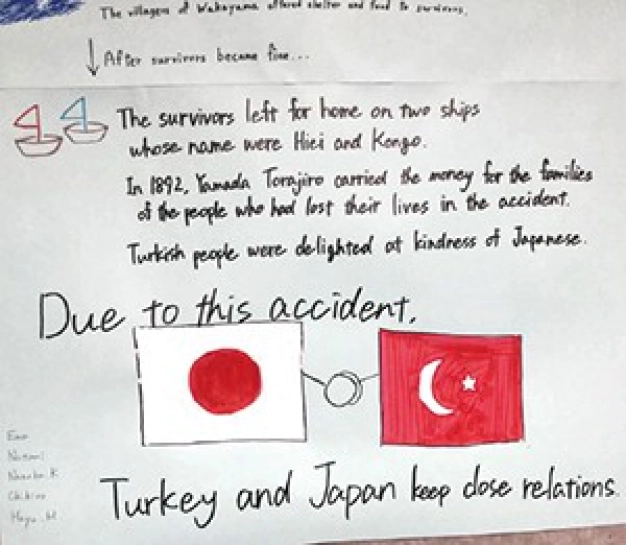 The villagers of Wakayama offered shelter and food to survivors.
After survivors became fine...
The survivors left for home on two ships
whose name were Hiei and Kongo.
In 1892, Yamada Torajiro carried the money for the families
of the people who had lost their lives in the accident.
Turkish people were delighted at kindness of Japanese.
Due to this accident,
Turkey and Japan keep close relations.